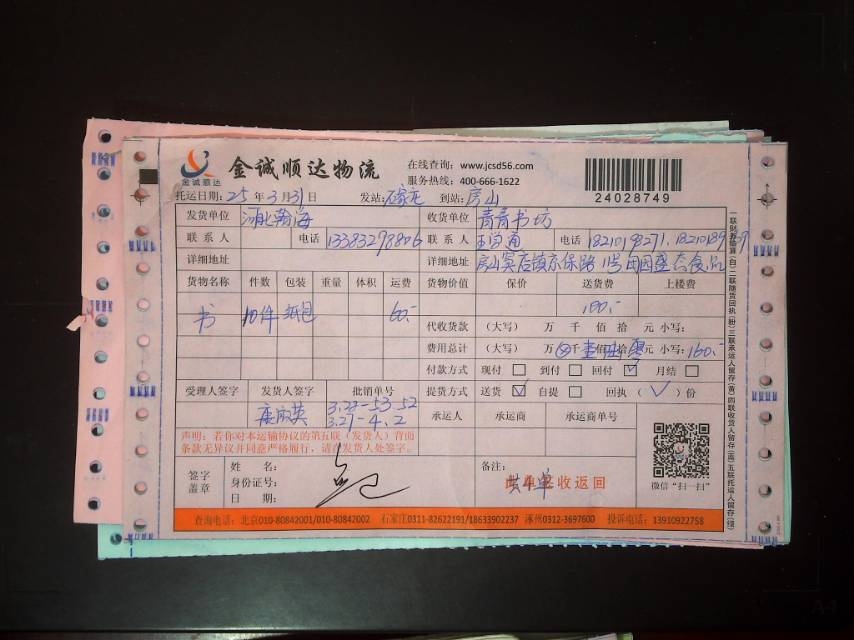 金诚顺达
金诚顺达物流
在线查询：www.jcsd56.com
服务热线：400-666-1622
24028749
托运日期：25年3月31日 发站： 到站：房山
发货单位 河北瀚海 收货单位 青青书坊
联系人 电话 13383298806 联系人 王学通 电话 18210198271.
详细地址 详细地址 房山窦店镇京保路1号田园
货物名称 件数 包装 重量 体积 运费 货物价值 保价 送货费 上楼费
书 10件 纸包 60.- 100.-
代收货款 （大写） 万 千 佰 拾 元 小写：
费用总计 （大写） 万 仟壹佰陆拾零元 小写：160.-
付款方式 现付 到付 回付 月结
受理人签字 发货人签字 批销单号 提货方式 送货 自提 回执（ ）份
3.27-53.52
3.27-4.2
承运人 承运商 承运商单号
声明：若你对本运输协议的第五联（发货人）背面
条款无异议并同意严格履行，请在发货人处签字。
签字
盖章
姓名：
身份证号：
日期：
备注：
签收返回
共4单
微信“扫一扫”
查询电话：北京010-80842001/010-80842002 石家庄0311-82622191/18633902237 涿州0312-3697600 投诉电话：13910922758